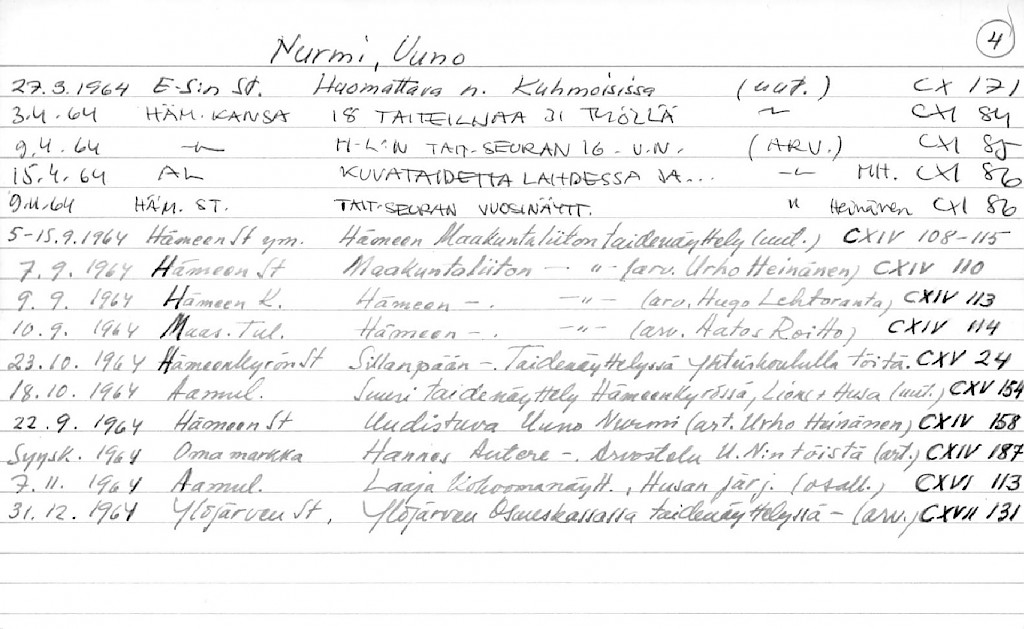 4
Nurmi, Uuno
27.3.1964 E-S:n St. Huomattava n. Kuhmoisissa (uut.) CX 171
3.4.64 HÄM.KANSA 18 TAITEILIJAA 31 TYÖLLÄ -"- CXI 84
9.4.64 -"- H-L:N TAIT-SEURAN 16-V.N. (ARV.) CXI 85
15.4.64 AL KUVATAIDETTA LAHDESSA JA... -"- MH. CXI 86
9.4.64 HÄM. ST. TAIT-SEURAN VUOSINÄYTT. " Heinänen CXI 86
5-15.9.1964 Hämeen St ym. Hämeen Maakuntaliiton taidenäyttely (uut.) CXIV 108-115
7.9.1964 Hämeen St Maakuntaliiton -. -"- (arv. Urho Heinänen) CXIV 110
9.9.1964 Hämeen K. Hämeen -. -"- (arv. Hugo Lehtoranta) CXIV 113
10.9.1964 Maas.Tul. Hämeen -. -"- (arv. Aatos Roitto) CXIV 114
23.10.1964 Hämeenkyrön St Sillanpään -. Taidenäyttelyssä Yhteiskoululla töitä. CXV 24
18.10.1964 Aamul. Suuri taidenäyttely Hämeenkyrössä, Lions + Husa (uut.) CXV 154
22.9.1964 Hämeen St Uudistuva Uuno Nurmi (art. Urho Heinänen) CXIV 158
Syysk. 1964 Omamarkka Hannes Autere -. Arvostelu U.N:n töistä (art.) CXIV 187
7.11.1964 Aamul. Laaja kokoomanäytt., Husan järj. (osall.) CXVI 113
31.12.1964 Ylöjärven St, Ylöjärven Osuuskassassa taidenäyttelyssä - (arv.) CXVII 131